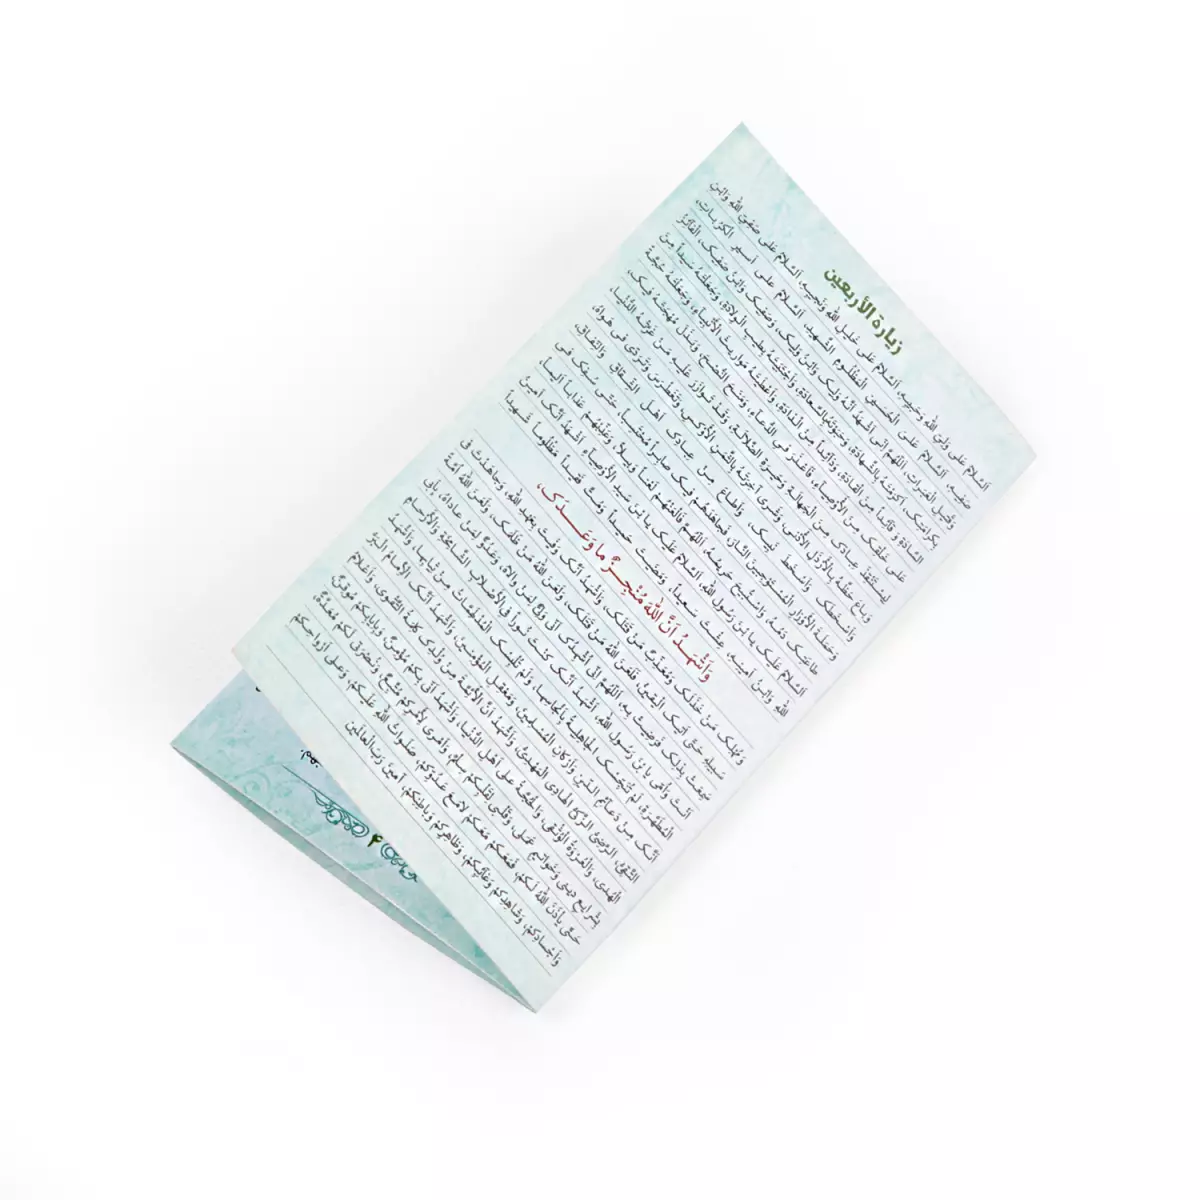 زيارة الأربعين
اَلسَّلامُ عَلى وَلِيِّ اللهِ وَحَبيبِهِ، اَلسَّلامُ عَلى خَليلِ اللهِ وَنَجيبِهِ، اَلسَّلامُ عَلى صَفِيِّ اللهِ وَابْنِ
صَفِيِّهِ، اَلسَّلامُ عَلَى الْحُسَيْنِ الْمَظْلُومِ الشَّهيدِ، اَلسَّلامُ عَلى اَسيرِ الْكُرُباتِ،
وَقَتيلِ الْعَبَراتِ، اَللّهُمَّ اِنّى اَشْهَدُ اَنَّهُ وَلِيُّكَ وَابْنُ وَلِيِّكَ، وَصَفِيُّكَ وَابْنُ صَفِيِّكَ، الْفآئِزُ
بِكَرامَتِكَ، اَكْرَمْتَهُ بِالشَّهادَةِ، وَحَبَوْتَهُ بِالسَّعادَةِ، وَاجْتَبَيْتَهُ بِطيبِ الْوِلادَةِ، وَجَعَلْتَهُ سَيِّداً مِنَ
السّادَةِ، وَقآئِداً مِنَ الْقادَةِ، وَذآئِداً مِنَ الذّادَةِ، وَاَعْطَيْتَهُ مَواريثَ الْأَنْبِيآءِ، وَجَعَلْتَهُ حُجَّةً
عَلى خَلْقِكَ مِنَ الْأَوْصِيآءِ، فَاَعْذَرَ فىِ الدُّعآءِ، وَمَنَحَ النُّصْحَ، وَبَذَلَ مُهْجَتَهُ فيكَ،
لِيَسْتَنْقِذَ عِبادَكَ مِنَ الْجَهالَةِ وَحَيْرَةِ الضَّلالَةِ، وَقَدْ تَوازَرَ عَلَيْهِ مَنْ غَرَّتْهُ الدُّنْيا،
وَباعَ حَظَّهُ بِالْأَرْذَلِ الْأَدْنى، وَشَرى آخِرَتَهُ بِالثَّمَنِ الْأَوْكَسِ، وَتَغَطْرَسَ وَتَرَدّى فى هَواهُ،
وَاَسْخَطَكَ وَاَسْخَطَ نَبِيَّكَ، وَاَطاعَ مِنْ عِبادِكَ اَهْلَ الشِّقاقِ وَالنِّفاقِ،
وَحَمَلَةَ الْأَوْزارِ الْمُسْتَوْجِبينَ النّارَ، فَجاهَدَهُمْ فيكَ صابِراً مُحْتَسِباً، حَتّى سُفِكَ فى
طاعَتِكَ دَمُهُ، وَاسْتُبيحَ حَريمُهُ، اَللّهُمَّ فَالْعَنْهُمْ لَعْناً وَبيلاً، وَعَذِّبْهُمْ عَذاباً اَليماً،
اَلسَّلامُ عَلَيْكَ يَا بْنَ رَسُولِ اللهِ، اَلسَّلامُ عَلَيْكَ يَا بْنَ سَيِّدِ الْأَوْصِيآءِ، اَشْهَدُ اَنَّكَ اَمينُ
اللهِ وَابْنُ اَمينِهِ، عِشْتَ سَعيداً، وَمَضَيْتَ حَميداً، وَمُتَّ فَقيداً مَظْلُوماً شَهيداً
وَاَشْهَدُ اَنَّ اللهَ مُنْجِزٌ ما وَعَدَكَ،
وَمُهْلِكٌ مَنْ خَذَلَكَ، وَمُعَذِّبٌ مَنْ قَتَلَكَ، وَاَشْهَدُ اَنَّكَ وَفَيْتَ بِعَهْدِ اللهِ، وَجاهَدْتَ فى
سَبيلِهِ حَتّى اَتيكَ الْيَقينُ، فَلَعَنَ اللهُ مَنْ قَتَلَكَ، وَلَعَنَ اللهُ مَنْ ظَلَمَكَ، وَلَعَنَ اللهُ اُمَّةً
سَمِعَتْ بِذلِكَ فَرَضِيَتْ بِهِ، اَللّهُمَّ اِنّى اُشْهِدُكَ اَنّى وَلِىٌّ لِمَنْ والاهُ، وَعَدُوٌّ لِمَنْ عاداهُ، بِاَبى
اَنْتَ وَاُمّى يَا بْنَ رَسُولِ اللهِ، اَشْهَدُ اَنَّكَ كُنْتَ نُوراً فىِ الْأَصْلابِ الشّامِخَةِ وَالْأَرْحامِ
الْمُطَهَّرَةِ، لَمْ تُنَجِّسْكَ الْجاهِلِيَّةُ بِاَنْجاسِها، وَلَمْ تُلْبِسْكَ الْمُدْلَهِمّاتُ مِنْ ثِيابِها، وَاَشْهَدُ
اَنَّكَ مِنْ دَعآئِمِ الدّينِ وَاَرْكانِ الْمُسْلِمينَ، وَمَعْقِلِ الْمُؤْمِنينَ، وَاَشْهَدُ اَنَّكَ الْاِمامُ الْبَرُّ
التَّقِىُّ، الرَّضِىُّ الزَّكِىُّ الْهادِى الْمَهْدِىُّ، وَاَشْهَدُ اَنَّ الْأَئِمَّةَ مِنْ وُلْدِكَ كَلِمَةُ التَّقْوى، وَاَعْلامُ
الْهُدى، وَالْعُرْوَةُ الْوُثْقى، وَالْحُجَّةُ عَلى اَهْلِ الدُّنْيا، وَاَشْهَدُ اَنّى بِكُمْ مُؤْمِنٌ، وَبِاِيابِكُمْ مُوقِنٌ،
بِشَرايِعِ دينى وَخَواتيمِ عَمَلى، وَقَلْبى لِقَلْبِكُمْ سِلْمٌ، وَاَمْرى لِأَمْرِكُمْ مُتَّبِعٌ، وَنُصْرَتى لَكُمْ مُعَدَّةٌ
حَتّى يَاْذَنَ اللهُ لَكُمْ، فَمَعَكُمْ مَعَكُمْ لامَعَ عَدُوِّكُمْ، صَلَواتُ اللهِ عَلَيْكُمْ، وَعَلى اَرْواحِكُمْ
وَاَجْسادِكُمْ، وَشاهِدِكُمْ وَغآئِبِكُمْ، وَظاهِرِكُمْ وَباطِنِكُمْ، آمينَ رَبَّ الْعالَمينَ
بهم.
۴